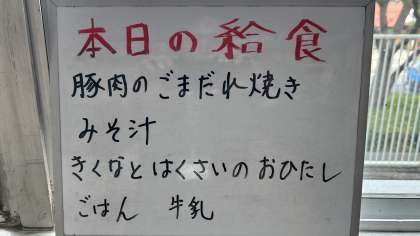 本日の給食
豚肉のごまだれ焼き
みそ汁
きくなとはくさいのおひたし
ごはん 牛乳